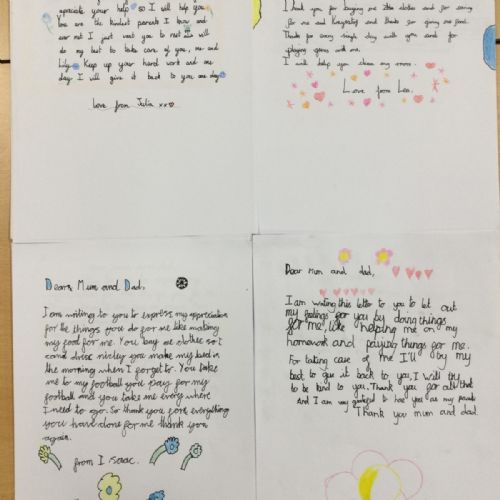 apreciate your help so I will help you
love are the kindest parents I know and
ever met I just want you to rest I will
do my best to take care of you, me and
Lily. Keep up your hard work and one
day I will give it back to you one day
Love from Julia xx
I thank you for buying me clothes and for caring
for me and and thanks for giving me food.
Thanks for every single day with you and for
playing games with me.
I will help you clean my room.
Love from Lea.
Dear, Mum and Dad,
I am writing to you to express my appreciation
for the things you do for me like making
my food for me. You bay me clothes so I
can drise nicley you make my bed in
the morning when I forget to. You take
me to my football you pay for my
football and you take me every where
I need to go. So thank you for everything
you have done for me thank you
again.
from I saac.
Dear mum and dad,
I am writing this letter to you to let out
my feelings for you by doing things
for me, like helping me on my
homework and paying things for me.
For taking care of me I'll by my
best to give it back to you, I will try
to be kind to you. Thank you for all that
And I am very grateful to have you as my parents
Thank you mum and dad.